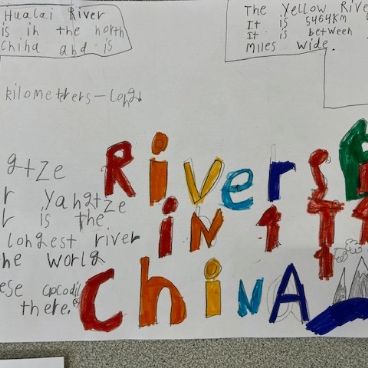 Hualai River
is in the north
China and is
The Yellow Rive
It is 5464km
It is between
Miles wide.
kilometrers-long
gtze
r Yangtze
r is the
longest river
he world
ese
there.
Rivers
in
China